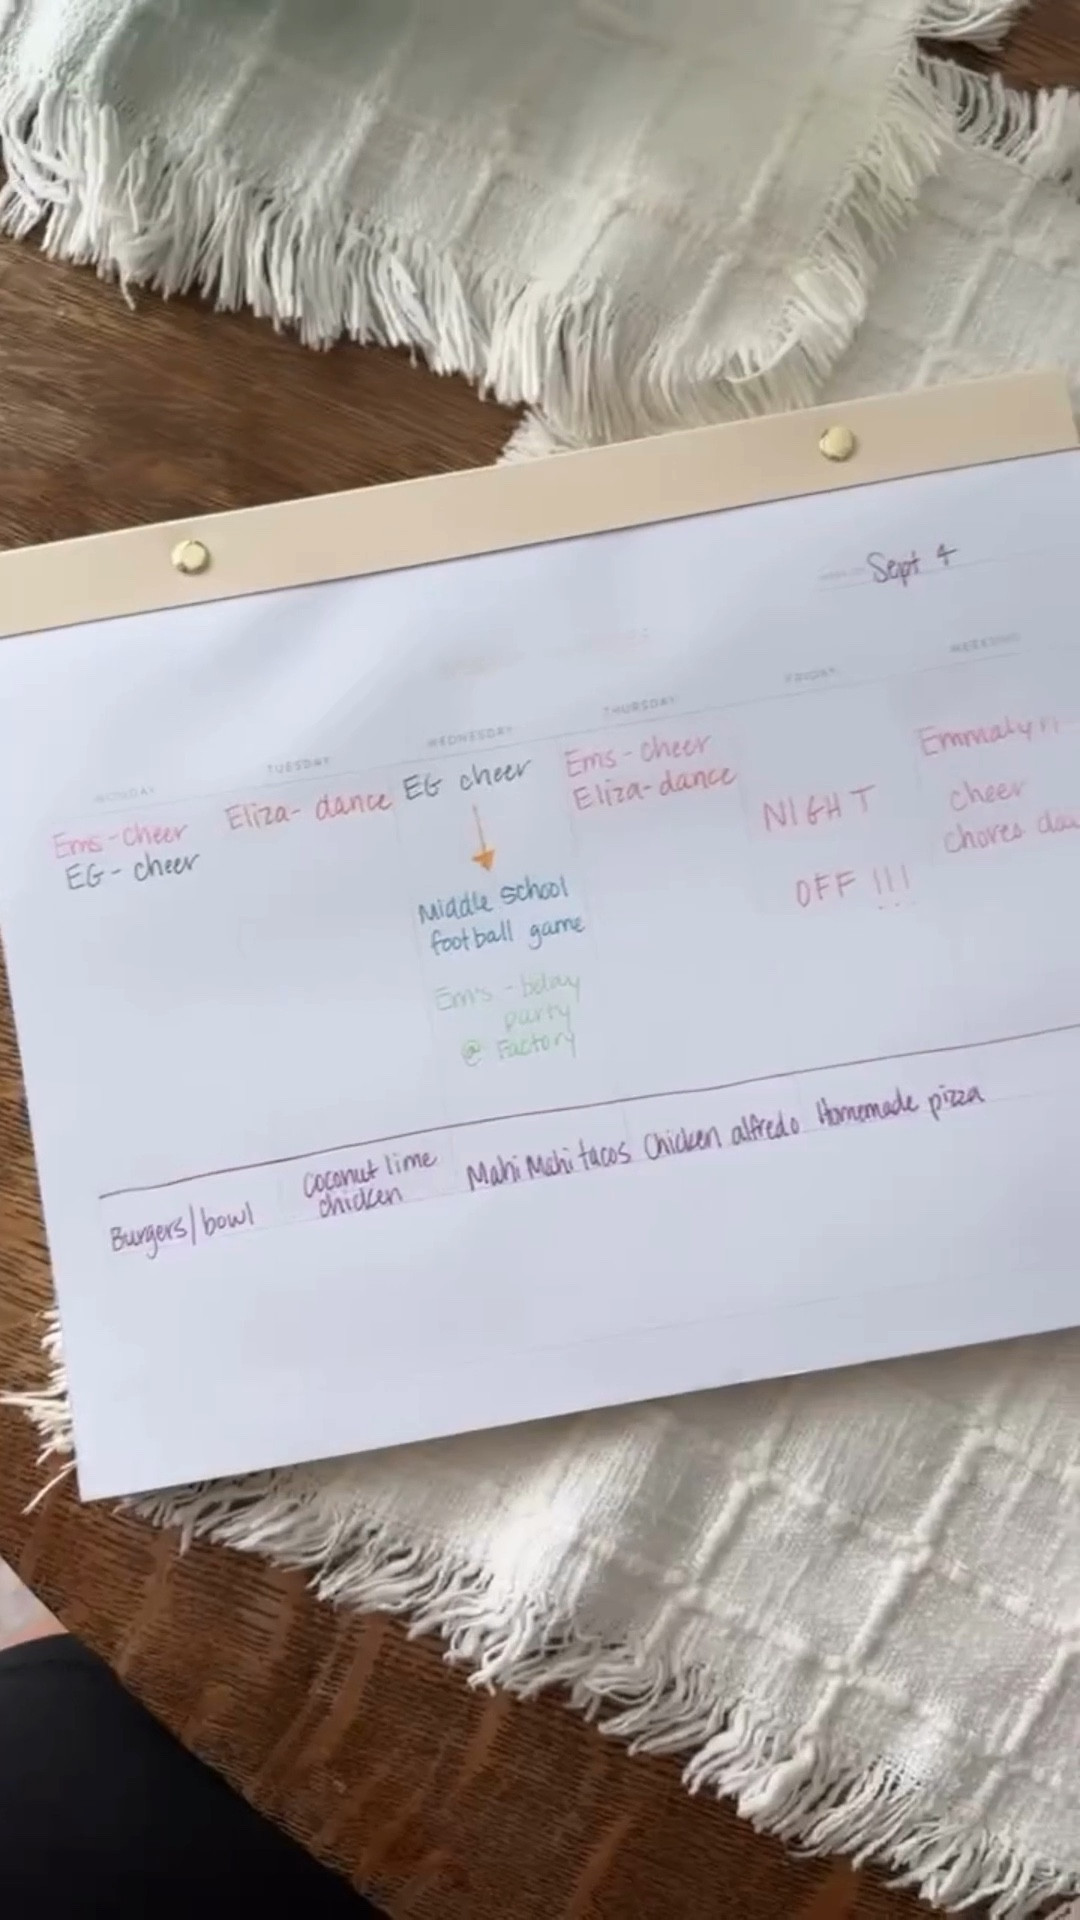 Sept 4
MONDAY
Ems - cheer
EG - cheer
TUESDAY
Eliza - dance
WEDNESDAY
EG cheer
Middle school
football game
Em's - bday
party
@ Factory
THURSDAY
Ems - cheer
Eliza - dance
FRIDAY
NIGHT
OFF !!!
WEEKEND
Emmalyn
cheer
chores
Burgers/bowl
coconut lime
chicken
Mahi Mahi tacos
Chicken alfredo
Homemade pizza